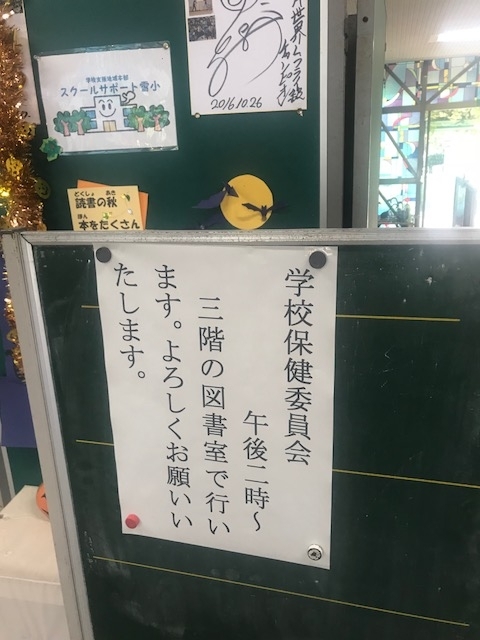 学校支援地域本部
スクールサポート雪小
2016.10.26
どくしょ あき
読書の秋
ほん
本をたくさん
学校保健委員会
午後二時～
三階の図書室で行い
ます。よろしくお願いい
たします。